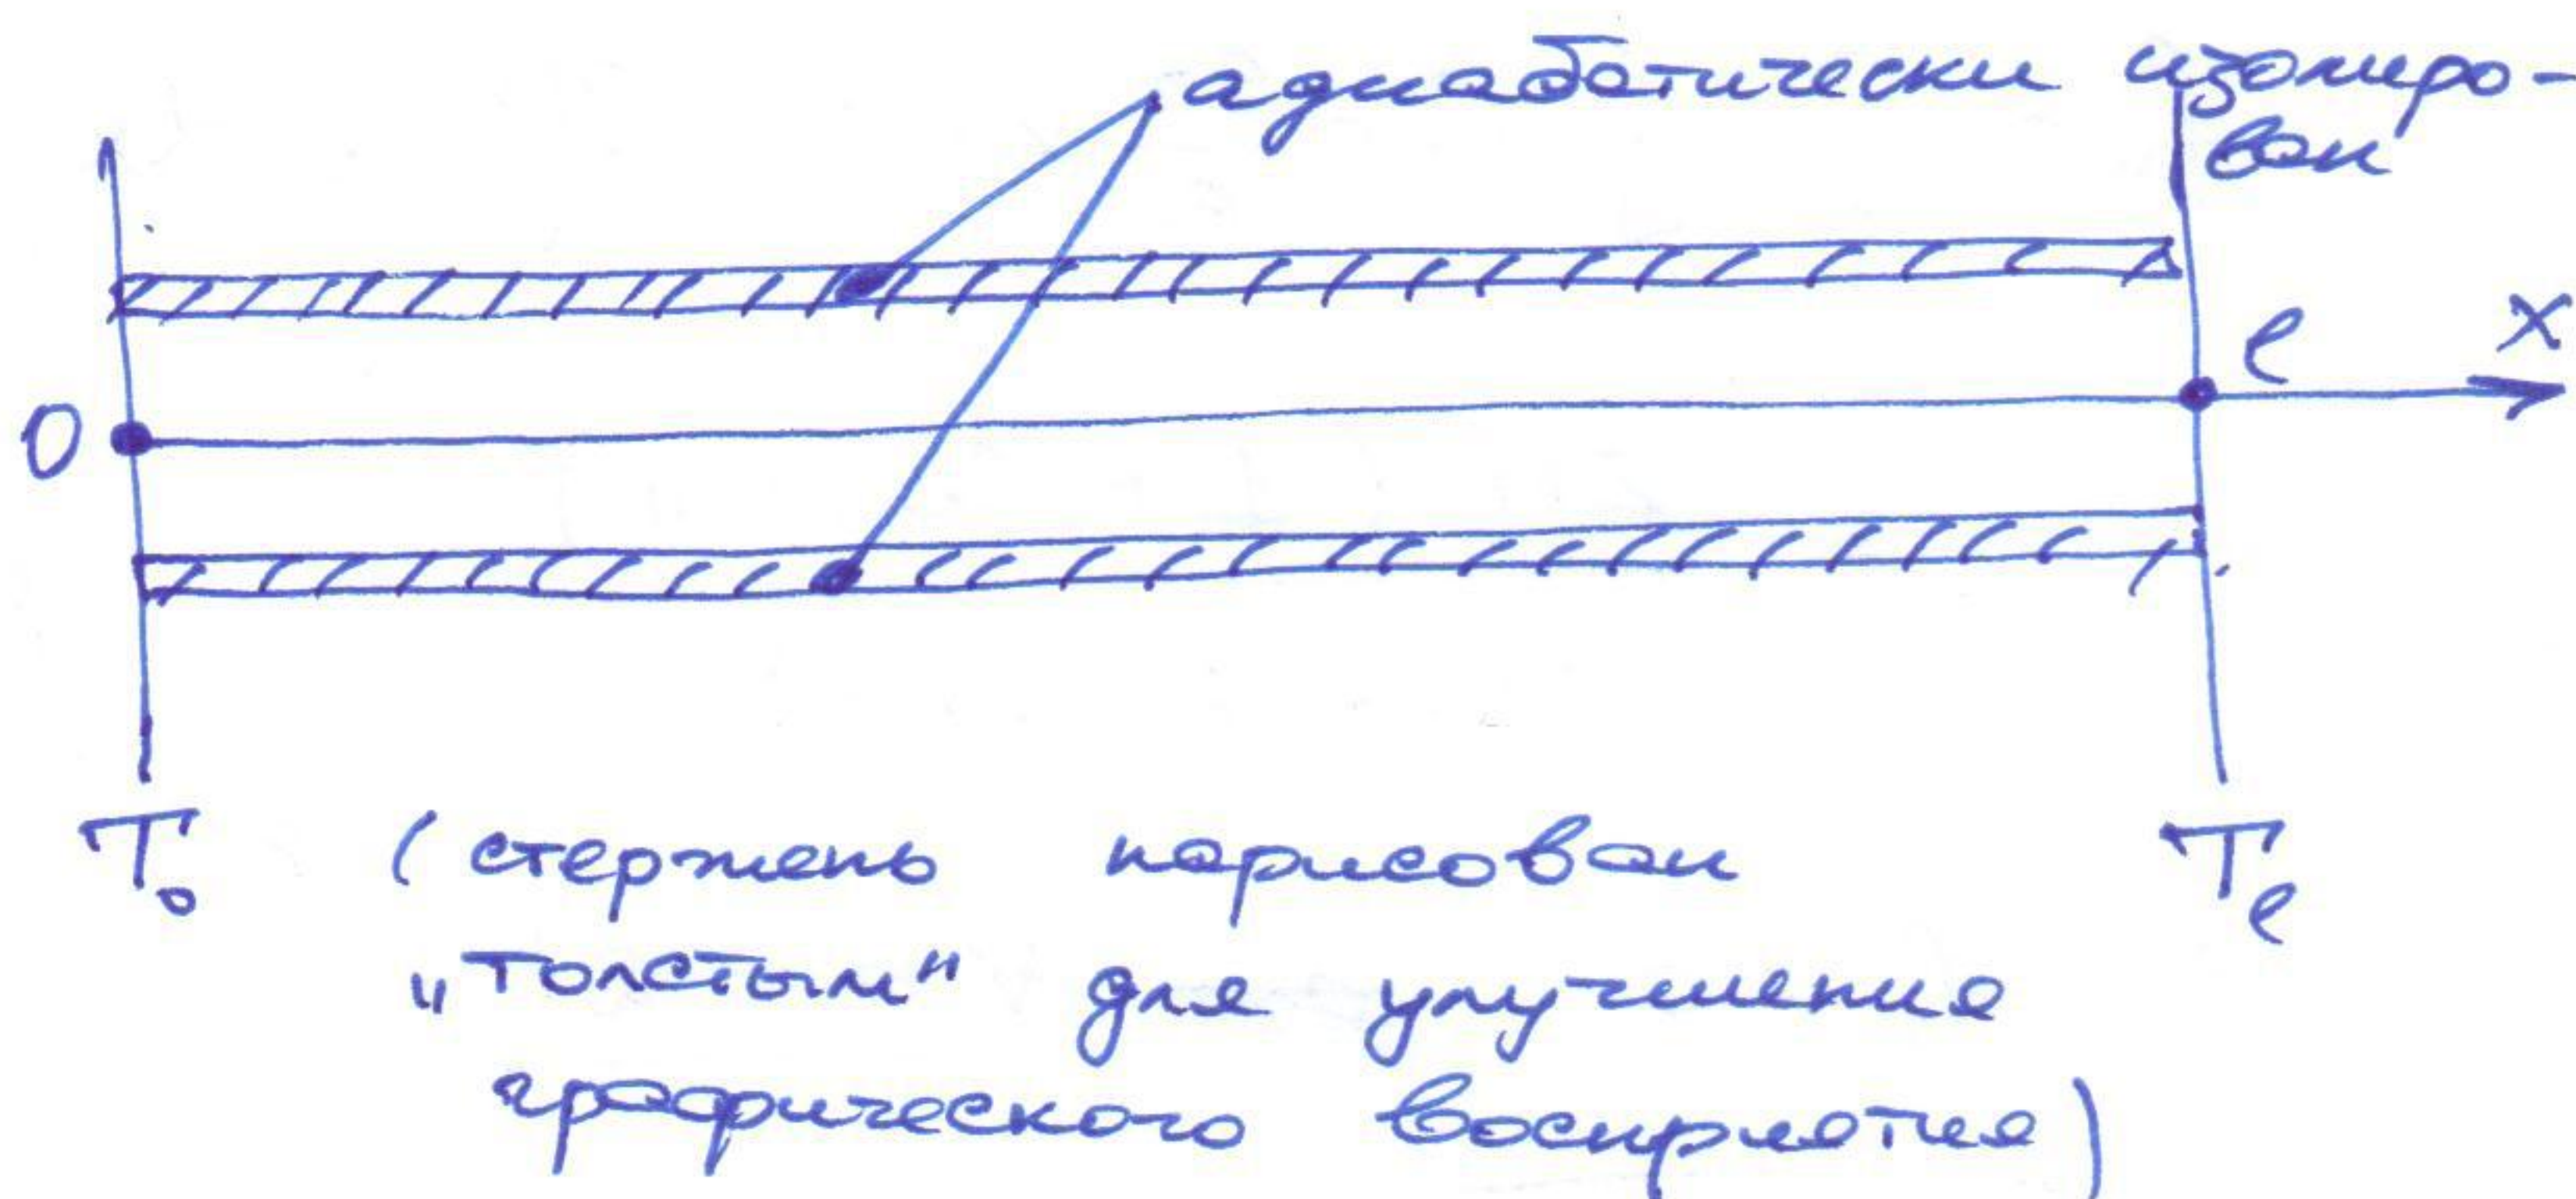 адиабатически изолиро-
ван
0
l
x
T₀
Tₗ
(стержень нарисован
„толстым" для улучшения
графического восприятия)